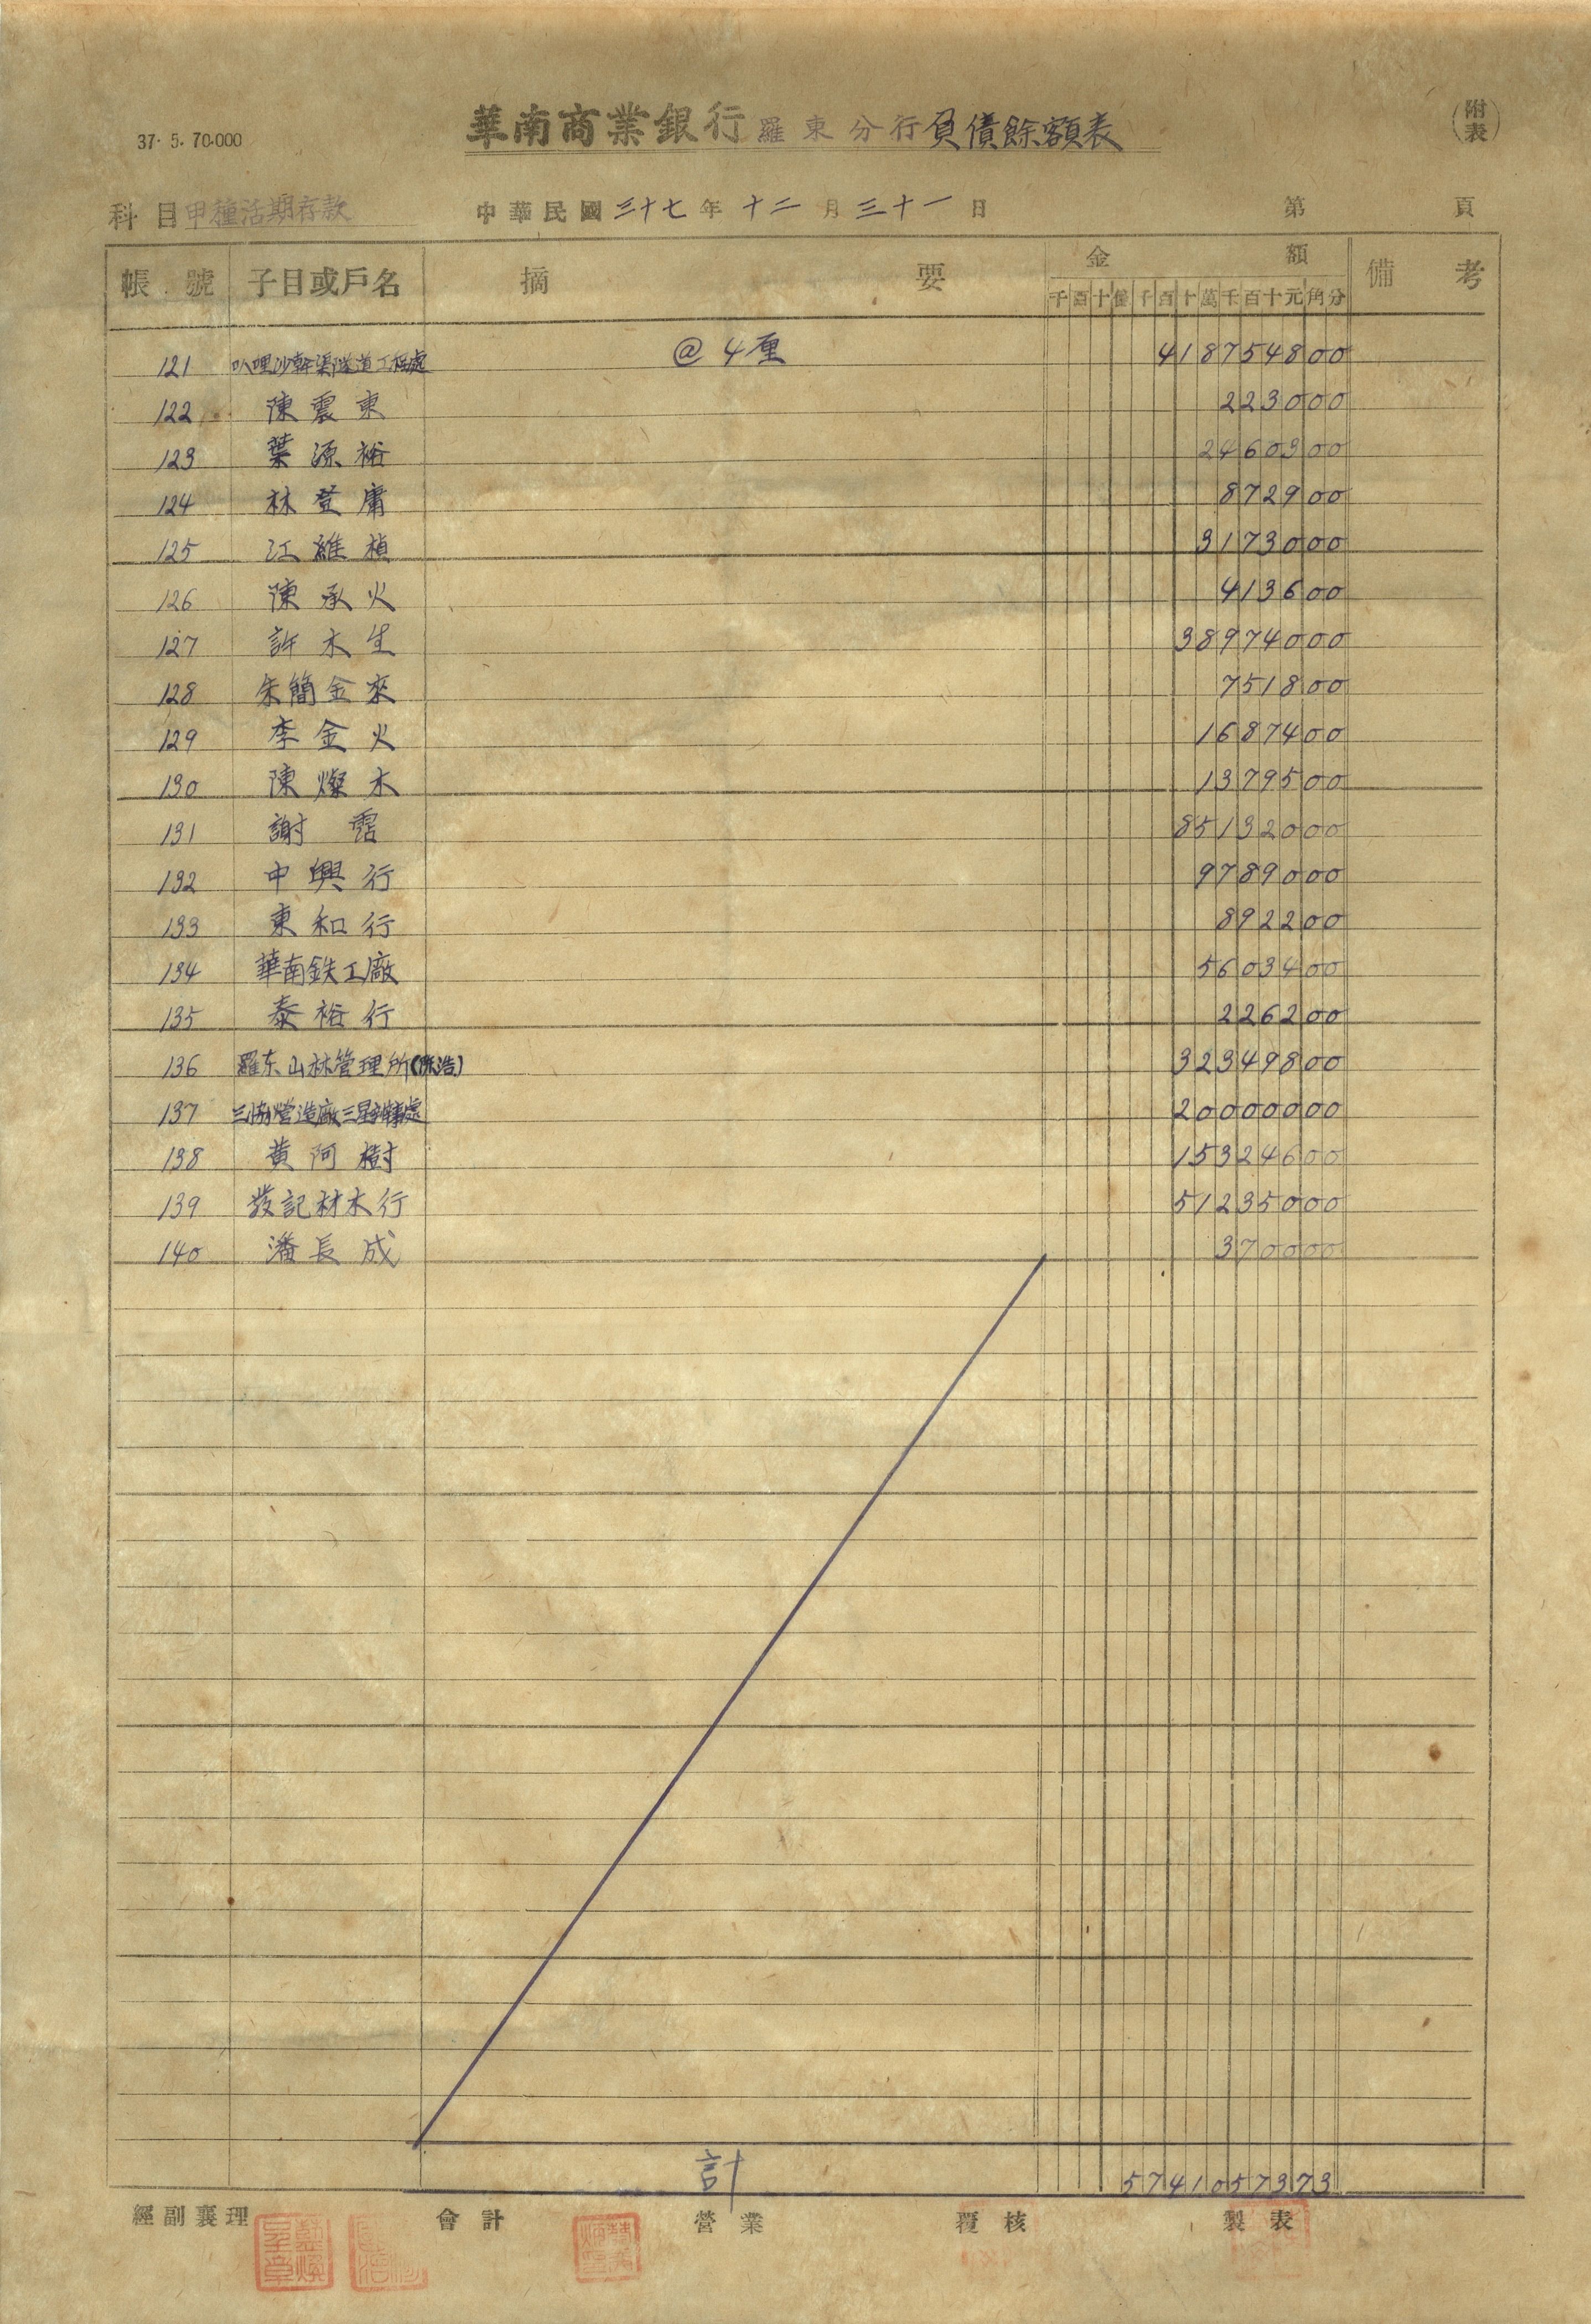 37. 5. 70.000
華南商業銀行羅東分行負債餘額表
(附表)
科目甲種活期存款 中華民國三十七年十二月三十一日 第 頁
帳號 子目或戶名 摘要 金額 備考
千百十億千百十萬千百十元角分
121 叭哩沙幹渠隧道工程處 @4厘 418754800
122 陳震東 223000
123 葉源裕 2460300
124 林登庸 872900
125 江維楨 3173000
126 陳承火 413600
127 許木生 38974000
128 朱簡金來 751800
129 李金火 1687400
130 陳燦木 1379500
131 謝 85132000
132 中興行 9789000
133 東和行 892200
134 華南鉄工廠 5603400
135 泰裕行 226200
136 羅东山林管理所(陈浩) 32349800
137 三協營造廠三星辦事處 20000000
138 黃阿樹 15324600
139 發記材木行 51235000
140 潘長成 370000
計 5741057373
經副襄理 會計 營業 覆核 製表